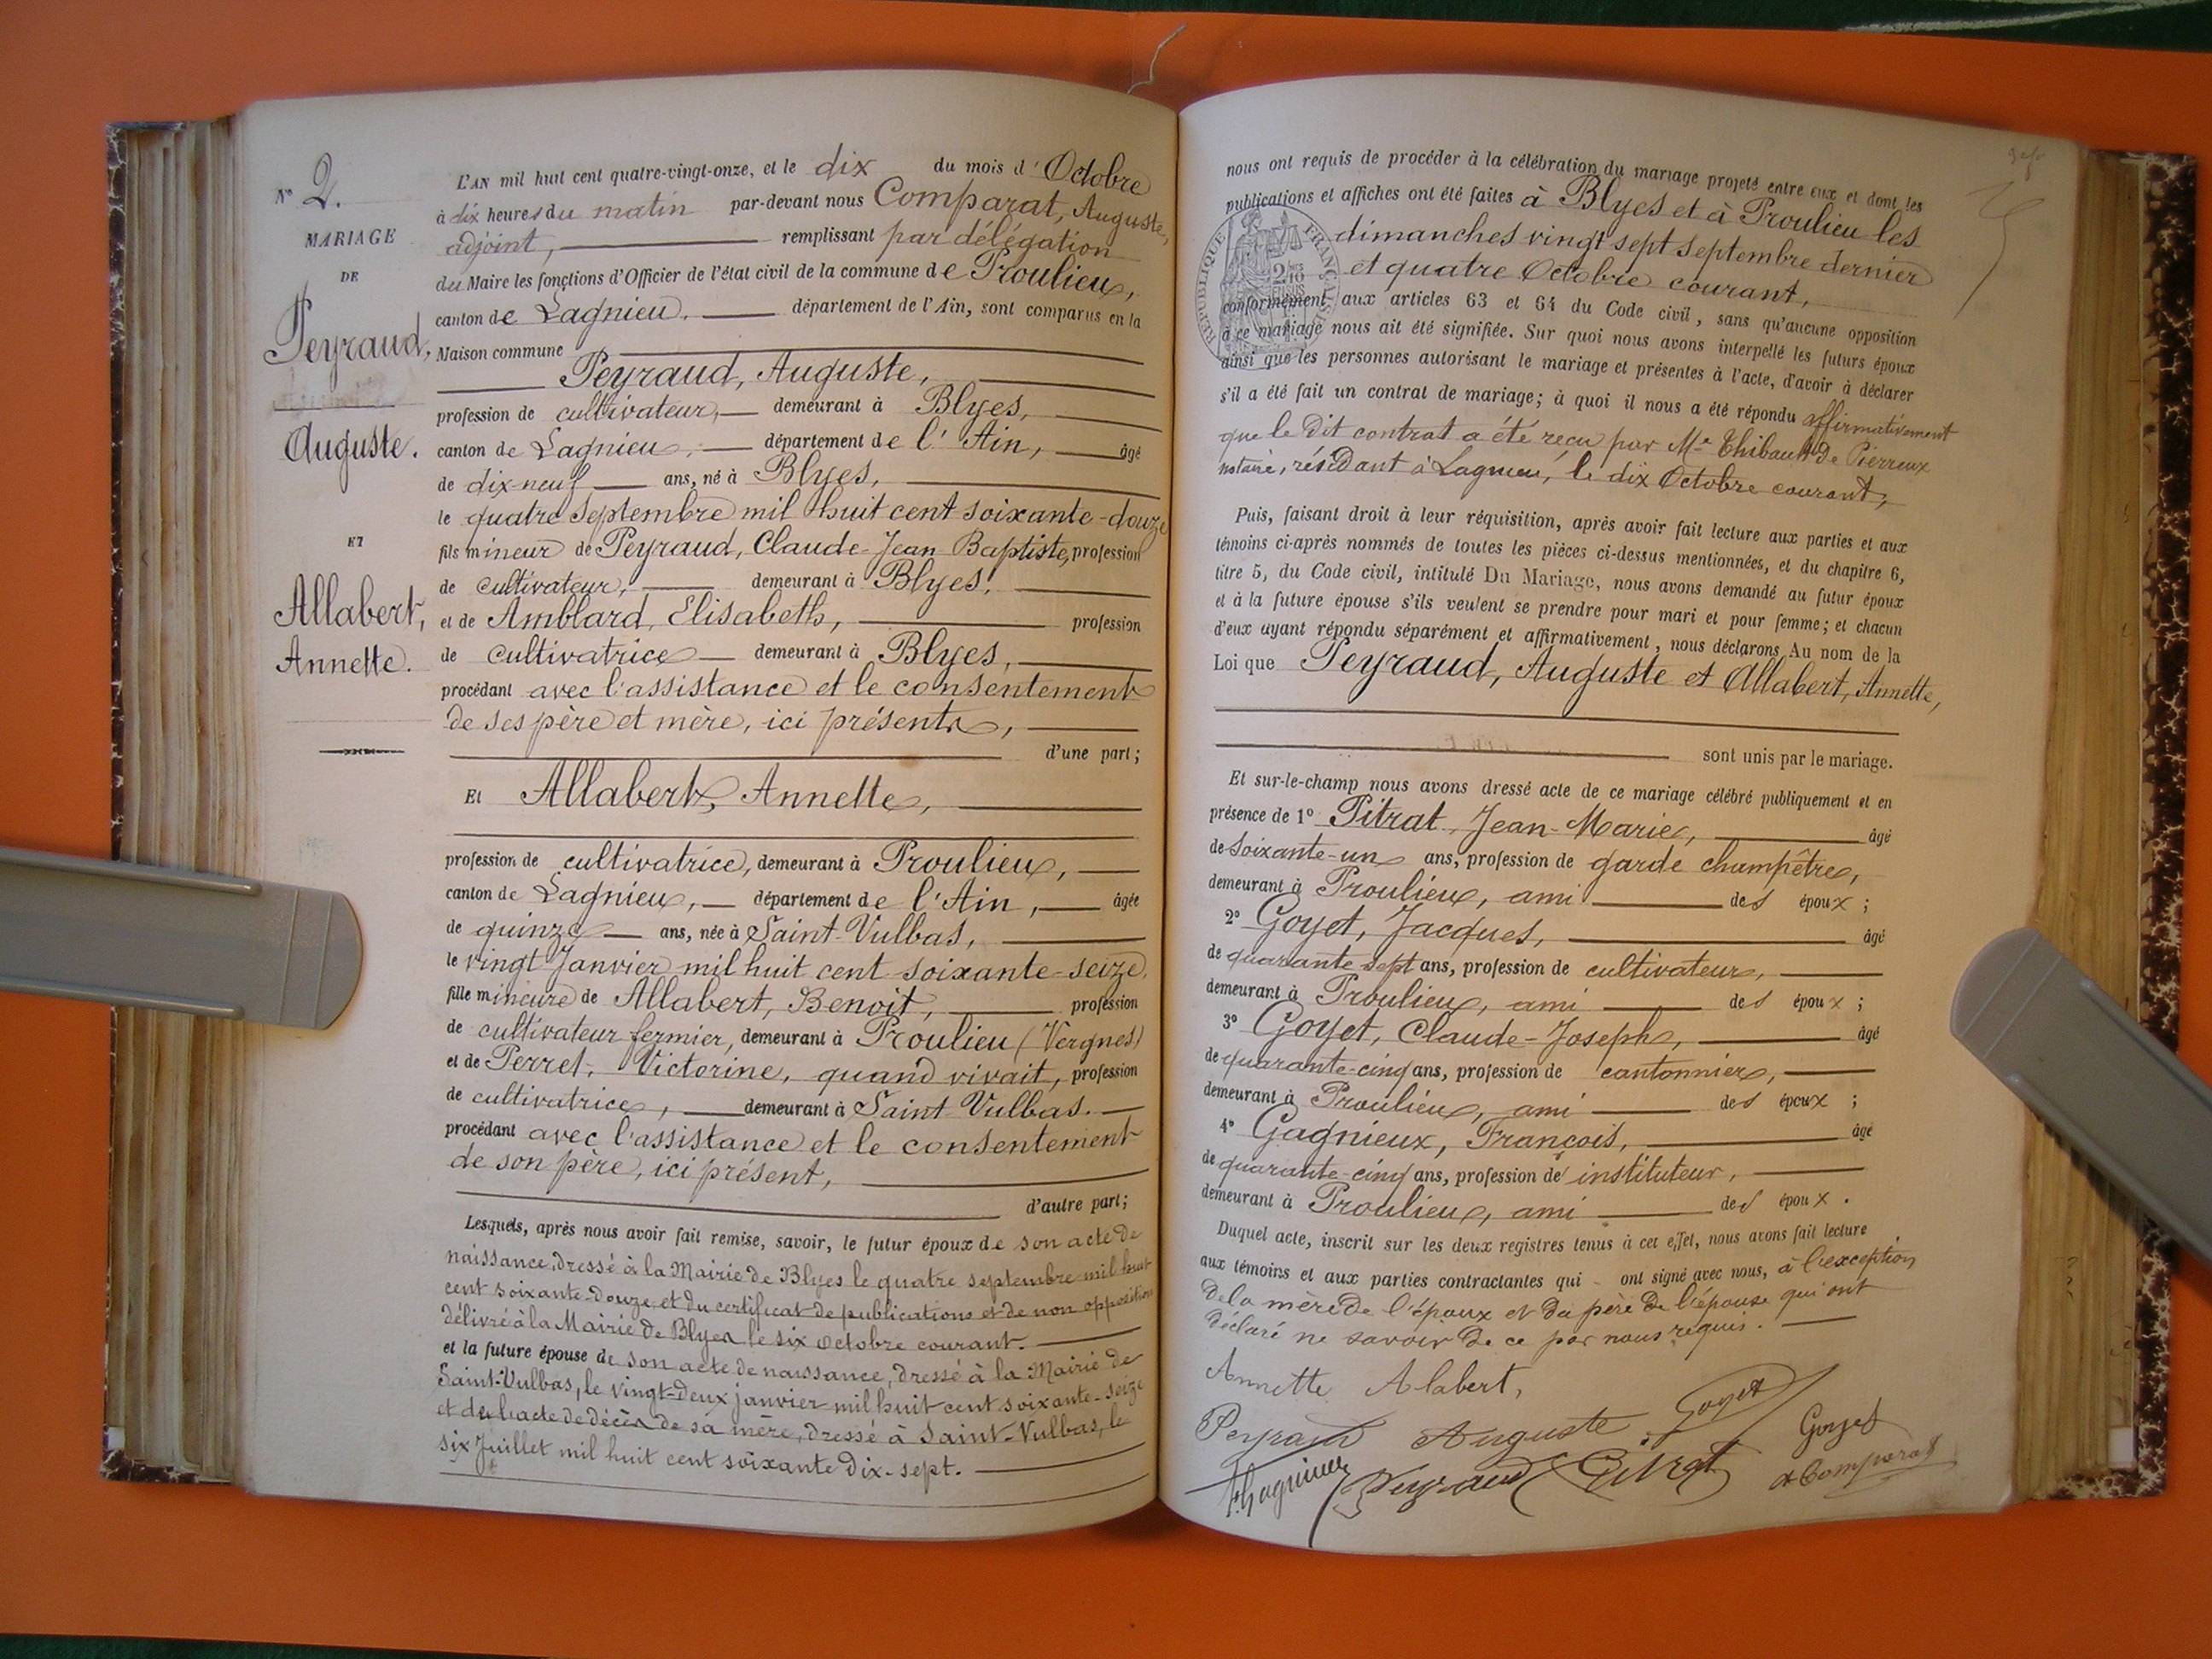 N° 2.
MARIAGE
DE
Peyraud,
Auguste.
ET
Allabert,
Annette.
L'AN mil huit cent quatre-vingt-onze, et le dix du mois d'Octobre
à dix heures du matin par-devant nous Comparat, Auguste,
adjoint, remplissant par délégation
du Maire les fonctions d'Officier de l'état civil de la commune de Proulieu,
canton de Lagnieu. département de l'Ain, sont comparus en la
Maison commune
Peyraud, Auguste,
profession de cultivateur, demeurant à Blyes,
canton de Lagnieu, département de l'Ain, âgé
de dix-neuf ans, né à Blyes,
le quatre Septembre mil huit cent soixante-douze
fils mineur de Peyraud, Claude-Jean Baptiste, profession
de cultivateur, demeurant à Blyes,
et de Amblard, Elisabeth, profession
de cultivatrice demeurant à Blyes,
procédant avec l'assistance et le consentement
de ses père et mère, ici présents,
d'une part;
Et Allabert, Annette,
profession de cultivatrice, demeurant à Proulieu,
canton de Lagnieu, département de l'Ain, âgée
de quinze ans, née à Saint-Vulbas,
le vingt Janvier mil huit cent soixante-seize,
fille mineure de Allabert, Benoit, profession
de cultivateur fermier, demeurant à Proulieu (Vergnes)
et de Perret, Victorine, quand vivait, profession
de cultivatrice, demeurant à Saint Vulbas.
procédant avec l'assistance et le consentement
de son père, ici présent,
d'autre part;
Lesquels, après nous avoir fait remise, savoir, le futur époux de son acte de
naissance, dressé à la Mairie de Blyes le quatre septembre mil huit
cent soixante-douze, et du certificat de publications et de non opposition
délivré à la Mairie de Blyes le six Octobre courant.
et la future épouse de son acte de naissance, dressé à la Mairie de
Saint-Vulbas, le vingt-deux janvier mil huit cent soixante-seize
et de l'acte de décès de sa mère, dressé à Saint-Vulbas, le
six Juillet mil huit cent soixante dix-sept.
nous ont requis de procéder à la célébration du mariage projeté entre eux et dont les
publications et affiches ont été faites à Blyes et à Proulieu les
dimanches vingt sept septembre dernier
et quatre Octobre courant,
RÉPUBLIQUE FRANÇAISE
conformément aux articles 63 et 64 du Code civil, sans qu'aucune opposition
à ce mariage nous ait été signifiée. Sur quoi nous avons interpellé les futurs époux
ainsi que les personnes autorisant le mariage et présentes à l'acte, d'avoir à déclarer
s'il a été fait un contrat de mariage; à quoi il nous a été répondu affirmativement
que le dit contrat a été reçu par Me Thibault de Pierreux
notaire, résidant à Lagnieu, le dix Octobre courant,
Puis, faisant droit à leur réquisition, après avoir fait lecture aux parties et aux
témoins ci-après nommés de toutes les pièces ci-dessus mentionnées, et du chapitre 6,
titre 5, du Code civil, intitulé Du Mariage, nous avons demandé au futur époux
et à la future épouse s'ils veulent se prendre pour mari et pour femme; et chacun
d'eux ayant répondu séparément et affirmativement, nous déclarons Au nom de la
Loi que Peyraud, Auguste et Allabert, Annette,
sont unis par le mariage.
Et sur-le-champ nous avons dressé acte de ce mariage célébré publiquement et en
présence de 1° Pitrat, Jean-Marie, âgé
de soixante-un ans, profession de garde champêtre,
demeurant à Proulieu, ami des époux;
2° Goyet, Jacques, âgé
de quarante-sept ans, profession de cultivateur,
demeurant à Proulieu, ami des époux;
3° Goyet, Claude-Joseph, âgé
de quarante-cinq ans, profession de cantonnier,
demeurant à Proulieu, ami des époux;
4° Gagnieux, François, âgé
de quarante-cinq ans, profession de instituteur,
demeurant à Proulieu, ami des époux.
Duquel acte, inscrit sur les deux registres tenus à cet effet, nous avons fait lecture
aux témoins et aux parties contractantes qui ont signé avec nous, à l'exception
de la mère de l'époux et du père de l'épouse qui ont
déclaré ne savoir de ce par nous requis.
Annette Alabert,
Peyraud Auguste Goyet Goyet
F. Gagnieux Peyraud Pitrat A Comparat